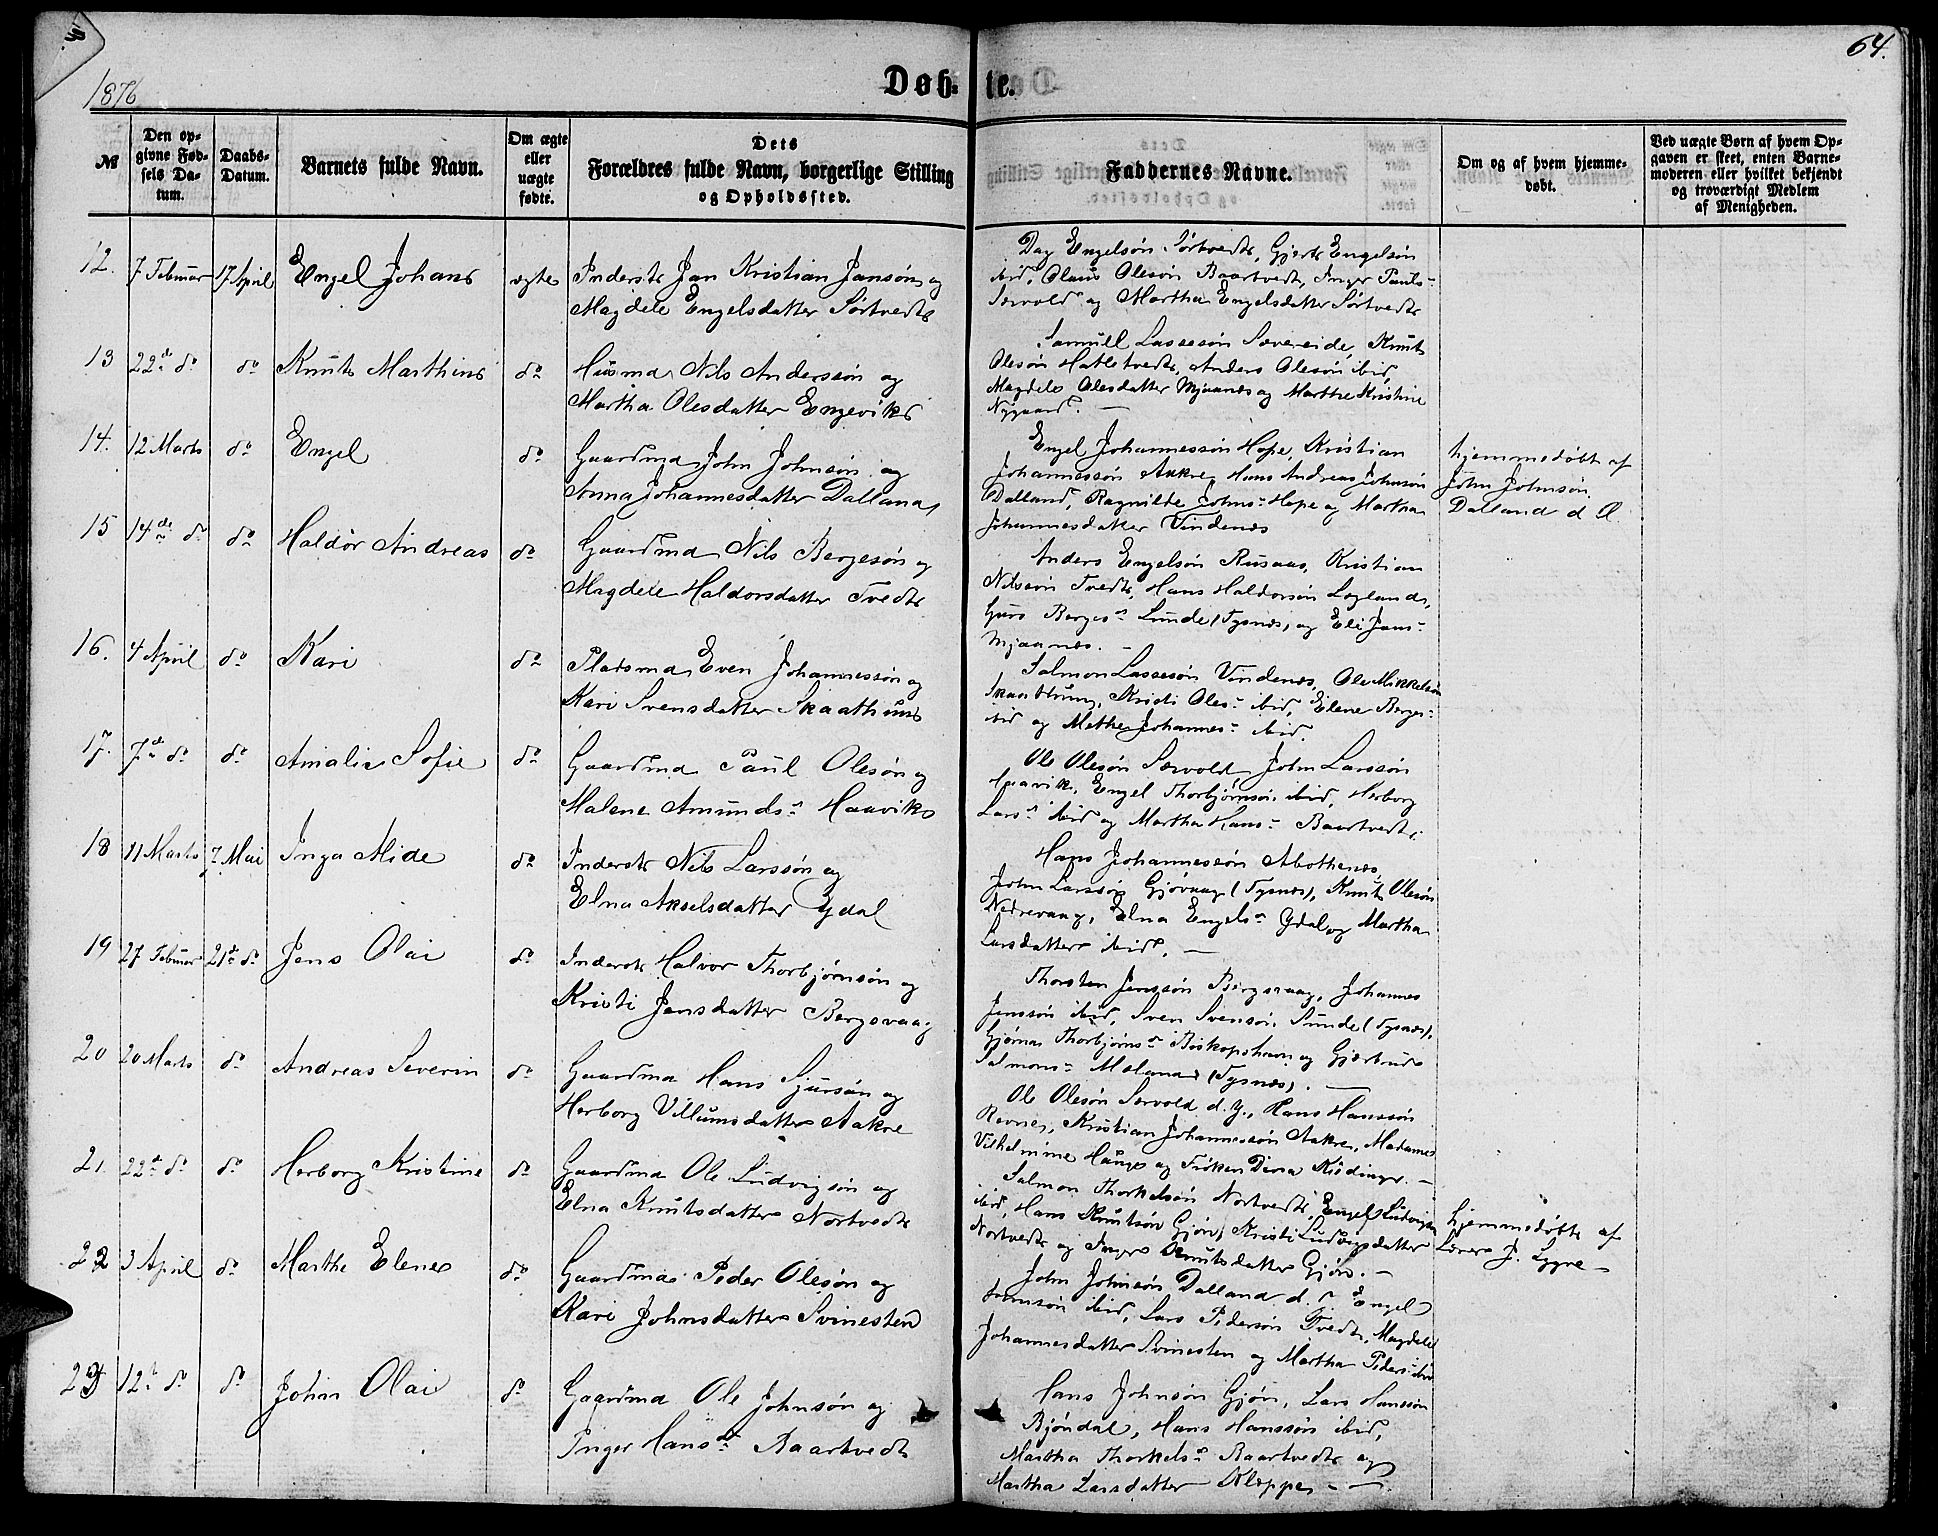 1876
Døbte.
64.
№
Den opgivne Fødsels Datum.
Daabs-Datum.
Barnets fulde Navn.
Om ægte eller uægte fødte.
Dets Forældres fulde Navn, borgerlige Stilling og Opholdssted.
Faddernes Navne.
Om og af hvem hjemmedøbt.
Ved uægte Børn af hvem Opgaven er skeet, enten Barnemoderen eller hvilket bekjendt og troværdigt Medlem af Menigheden.
12. 7 Februar 17 April Engel Johans ægte Inderst Jan Kristian Jansøn og
Magdele Engelsdatter Sørtvedt
Dag Engelsøn Sørtvedt, Gjert Engelsøn
ibid, Olaus Olesøn Baartvedt, Inger Pauls-
Sævold og Martha Engelsdatter Sørtvedt
13 22de do do Knut Marthins do Husmd Nils Anderssøn og
Martha Olesdatter Engevik
Samuel Lassesøn Sævereide, Knut
Olesøn Hatletvedt, Anders Olesøn ibid,
Magdele Olesdatter Mjaanes og Marthe Kristine
Nygaard. —
14. 12 Marts do Engel do Gaardmd John Johnsøn og
Anna Johannesdatter Dalland
Engel Johannessøn Hope, Kristian
Johannessøn Aakre, Hans Andreas Johnsøn
Dalland, Ragnilde Johns- Hope og Martha
Johannesdatter Vindenes
hjemmedøbt af
John Johnsøn
Dalland d Æ.
15 14de do do Haldor Andreas do Gaardmd Nils Bergesøn og
Magdele Haldorsdatter Tvedt
Anders Engelsøn Rusaas, Kristian
Nilssøn Tvedt, Hans Haldorsøn Løgland,
Guro Berges- Lunde (Tysnes) og Eli Jans-
Mjaanes. —
16. 4 April do Kari do Pladsmd Even Johannessøn og
Kari Svensdatter Skaathun
Salmon Lassesøn Vindenes, Ole Mikkelsøn
Skaathun, Kristi Oles- ibid, Elene Berges-
ibid og Mette Johannes- ibid.
17. 7de do do Amalie Sofie do Gaardmd Paul Olesøn og
Malene Amunds- Haavik
Ole Olesøn Sævold, John Larssøn
Haavik, Engel Thorbjørnsøn ibid, Herborg
Lars- ibid og Martha Hans- Baartvedt.
18 11 Marts 7 Mai Inga Mide do Inderst Nils Larssøn og
Elna Akselsdatter Ydal
Hans Johannessøn Abothenes,
John Larssøn Gjøvaag (Tysnes), Knut Olesøn
Nedrevaag, Elna Engels- Ydal og Martha
Larsdatter ibid. —
19 27 Februar 21de do Jens Olai do Inderst Halvor Thorbjørnsøn og
Kristi Jensdatter Bergsvaag
Thorsten Jenssøn Bergsvaag, Johannes
Jenssøn ibid, Sven Svensøn Sunde (Tysnes),
Gjørnas Thorbjørns- Biskopshavn og Gjertrud
Salmons- Møland (Tysnes). —
20 20 Marts do Andreas Severin do Gaardmd Hans Sjursøn og
Herborg Villumsdatter Aakre
Ole Olesøn Sævold d. Y., Hans Hanssøn
Revne, Kristian Johannessøn Aakre, Madame
Vilhelmine Hauge og Frøken Dina Rødinger. —
21 22de do do Herborg Kristine do Gaardmd Ole Ludvigsøn og
Elna Knutsdatter Nortvedt
Salmon Thorkelsøn Nortvedt, Engel Ludvigsøn
ibid, Hans Knutsøn Gjøn, Kristi Ludvigsdatter
Nortvedt og Inger Knutsdatter Gjøn. —
hjemmedøbt af
Lærer J. Lygre —
22 3 April do Marthe Elene do Gaardmd Peder Olesøn og
Kari Johnsdatter Svinesten
John Johnsøn Dalland d. Æ. Engel
Johnsøn ibid, Lars Pedersøn Tvedt, Magdele
Johannesdatter Svinesten og Martha Peders- ibid
23 12te do do John Olai do Gaardmd Ole Johnsøn og
Inger Hansdtr Baartvedt
Hans Johnsøn Gjøn, Lars Hanssøn
Bjøndal, Hans Hanssøn ibid,
Martha Thorkels- Baartvedt og
Martha Larsdatter Kleppe —